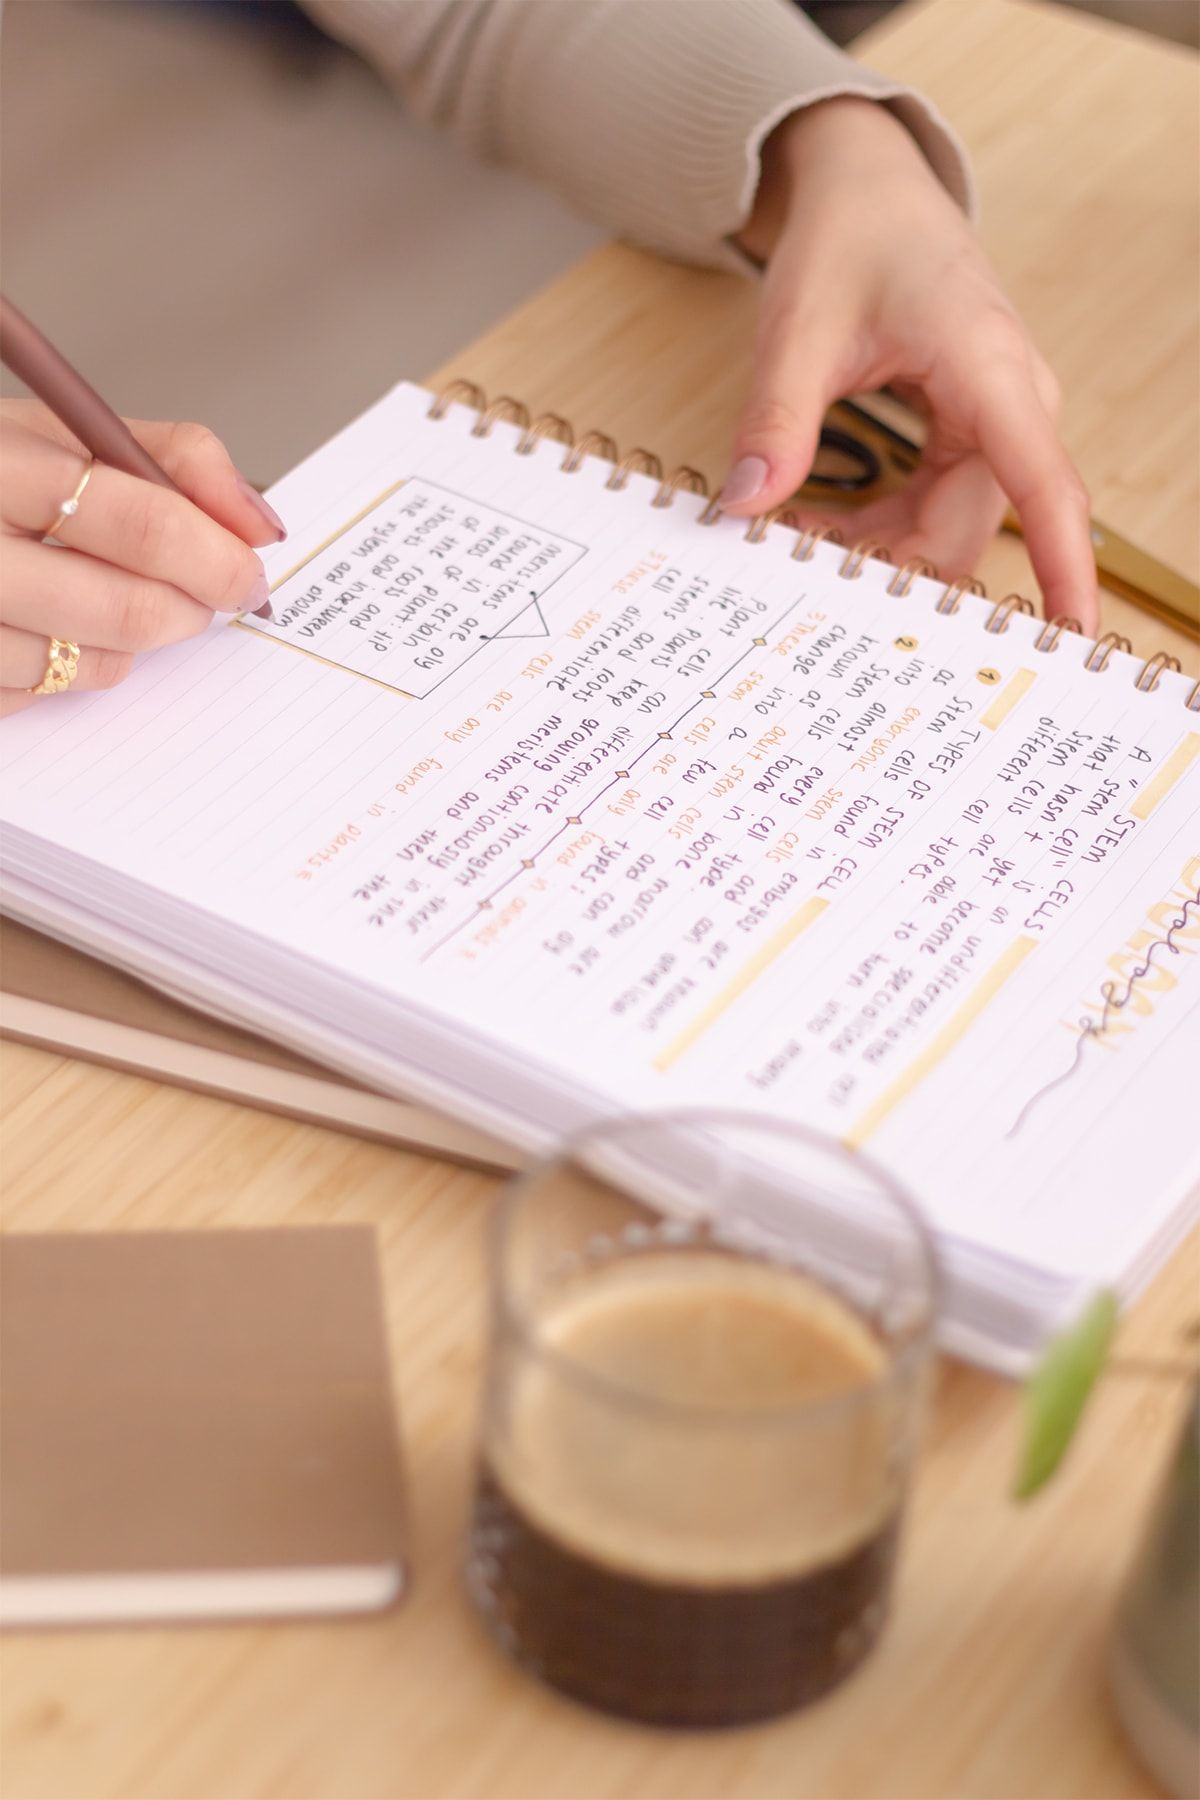 Biology
STEM CELLS
A "stem cell" is an undifferentiated cell
that hasn't yet become specialised
Stem cells are able to turn into many
different cell types.
TYPES OF STEM CELL
1 Stem cells found in embryos are known
as embryonic stem cells
into almost every cell type.
2 Stem cells found in bone marrow are
known as adult stem cells and can only
change into a few cell types;
These stem cells are only found in animals
Plant cells differentiate throughout their
life. Plants can keep growing
stems and roots continuously in the
cell differentiate meristems and then
These stem cells are only found in plants
meristems are oly
found in certain
areas of plant: tip
of the roots and
shoots and inbetween
the xylem and phloem